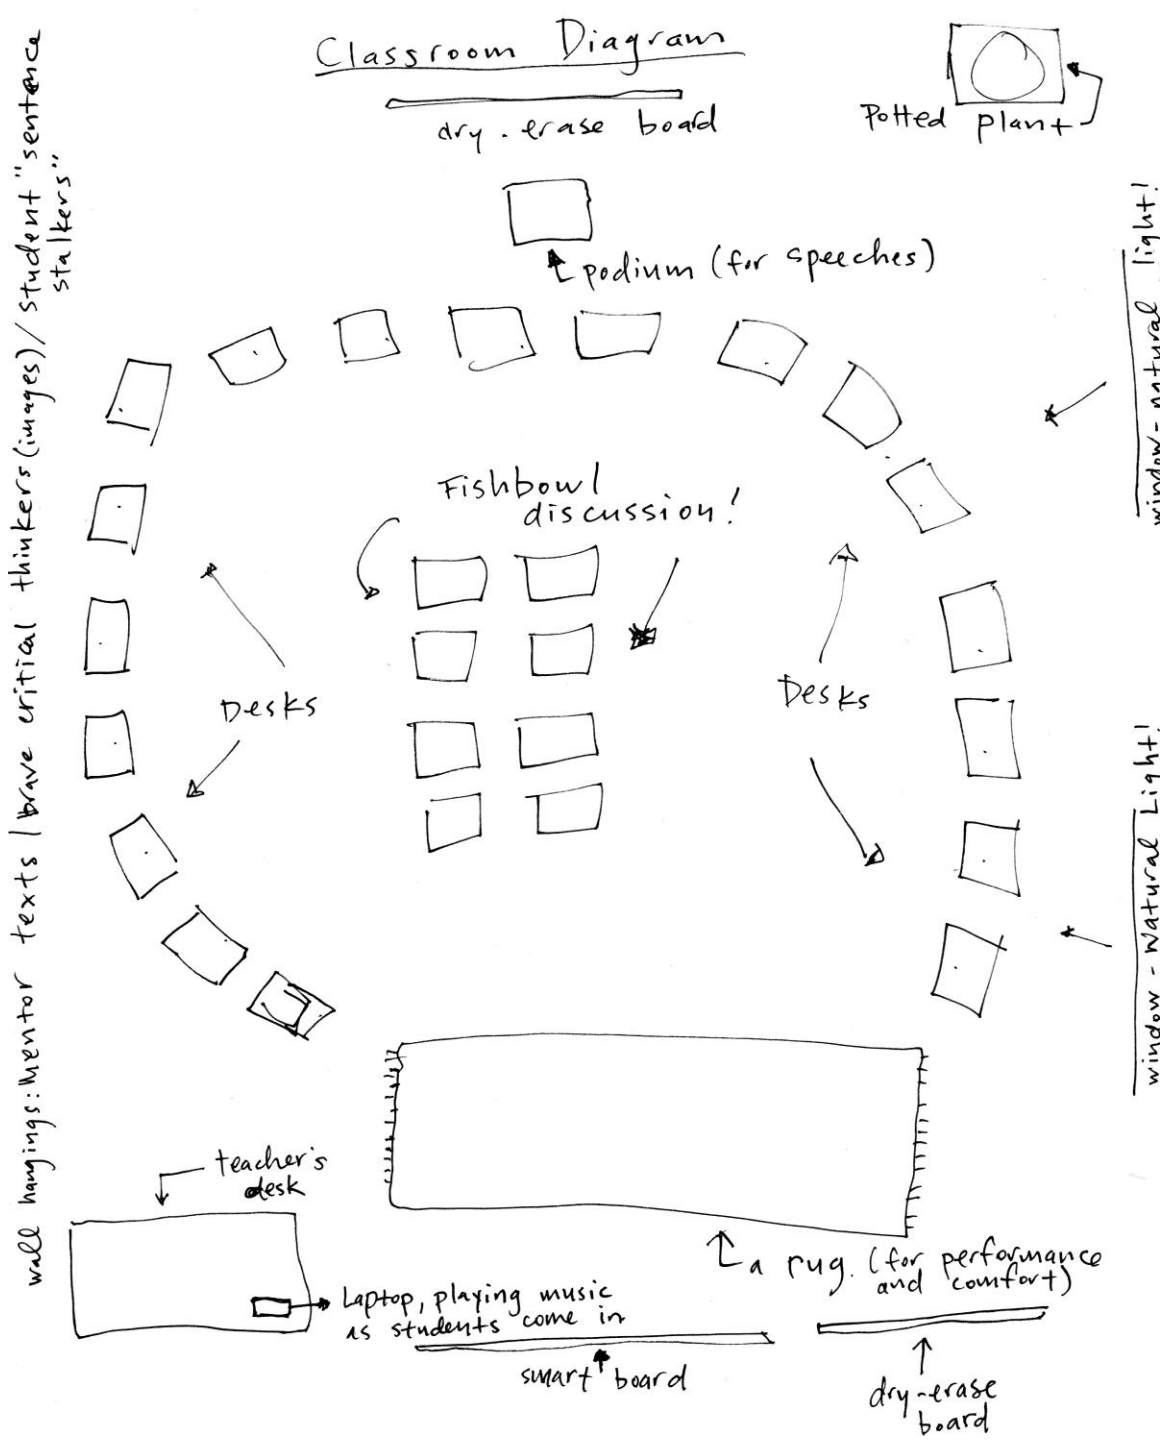 Classroom Diagram
dry-erase board
Potted plant
podium (for speeches)
wall hangings: Mentor texts / brave critical thinkers (images) / student "sentence
stalkers"
window - natural light!
Fishbowl
discussion!
Desks
Desks
window - Natural Light!
teacher's
desk
Laptop, playing music
as students come in
a rug. (for performance
and comfort)
smart board
dry-erase
board